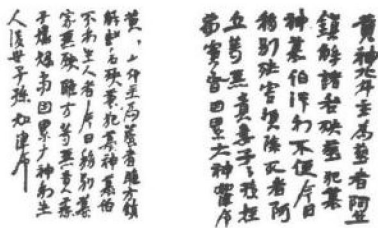 黄神北斗主為葬者阿丘
鎮解諸咎殃葬犯墓
神墓伯行利不便今日
移別殃害須除死者阿
丘等無責妻子孫姪
弟賓昏因累大神如律令
黄上主為葬者雎方鎮
解諸咎殃葬犯墓神墓伯
不利生人者今日移別墓
家無殃雎方等無責人妻
子孫姪弟因累大神利生
人後世子孫如律令